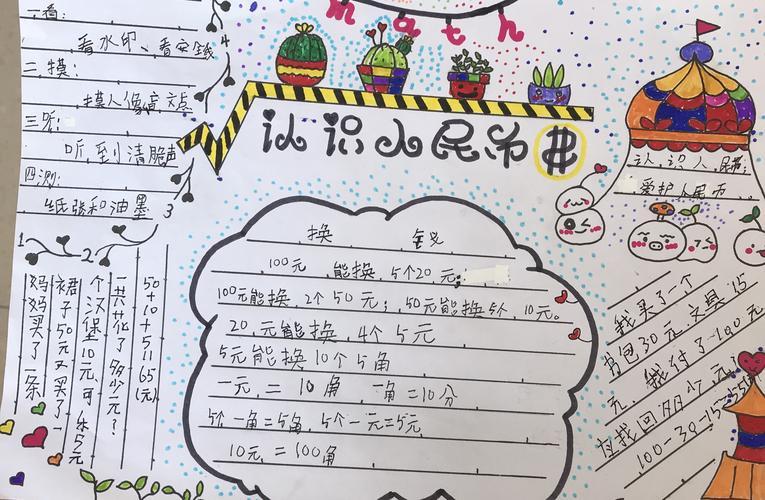 math
一看:
看水印、看安全线
4
二.摸:
摸人像盲文点
三听:
听到清脆声
四测:
纸张和油墨
3
认识人民币
认识人民币;
爱护人民币。
换钱
100元 能换5个20元;
100元能换2个50元;50元能换5个10元。
20元能换4个5元
5元能换10个5角
一元=10角 一角=10分
5个一角=5角,5个一元=5元
10元=100角
1
2
妈妈买了一条
裙子50元又买了一
个汉堡10元可乐5元
一共花了多少元?
50+10+5=65(元)
我买了一个
书包30元.文具15
元,我付了100元
应找回多少元
100-30-15=55